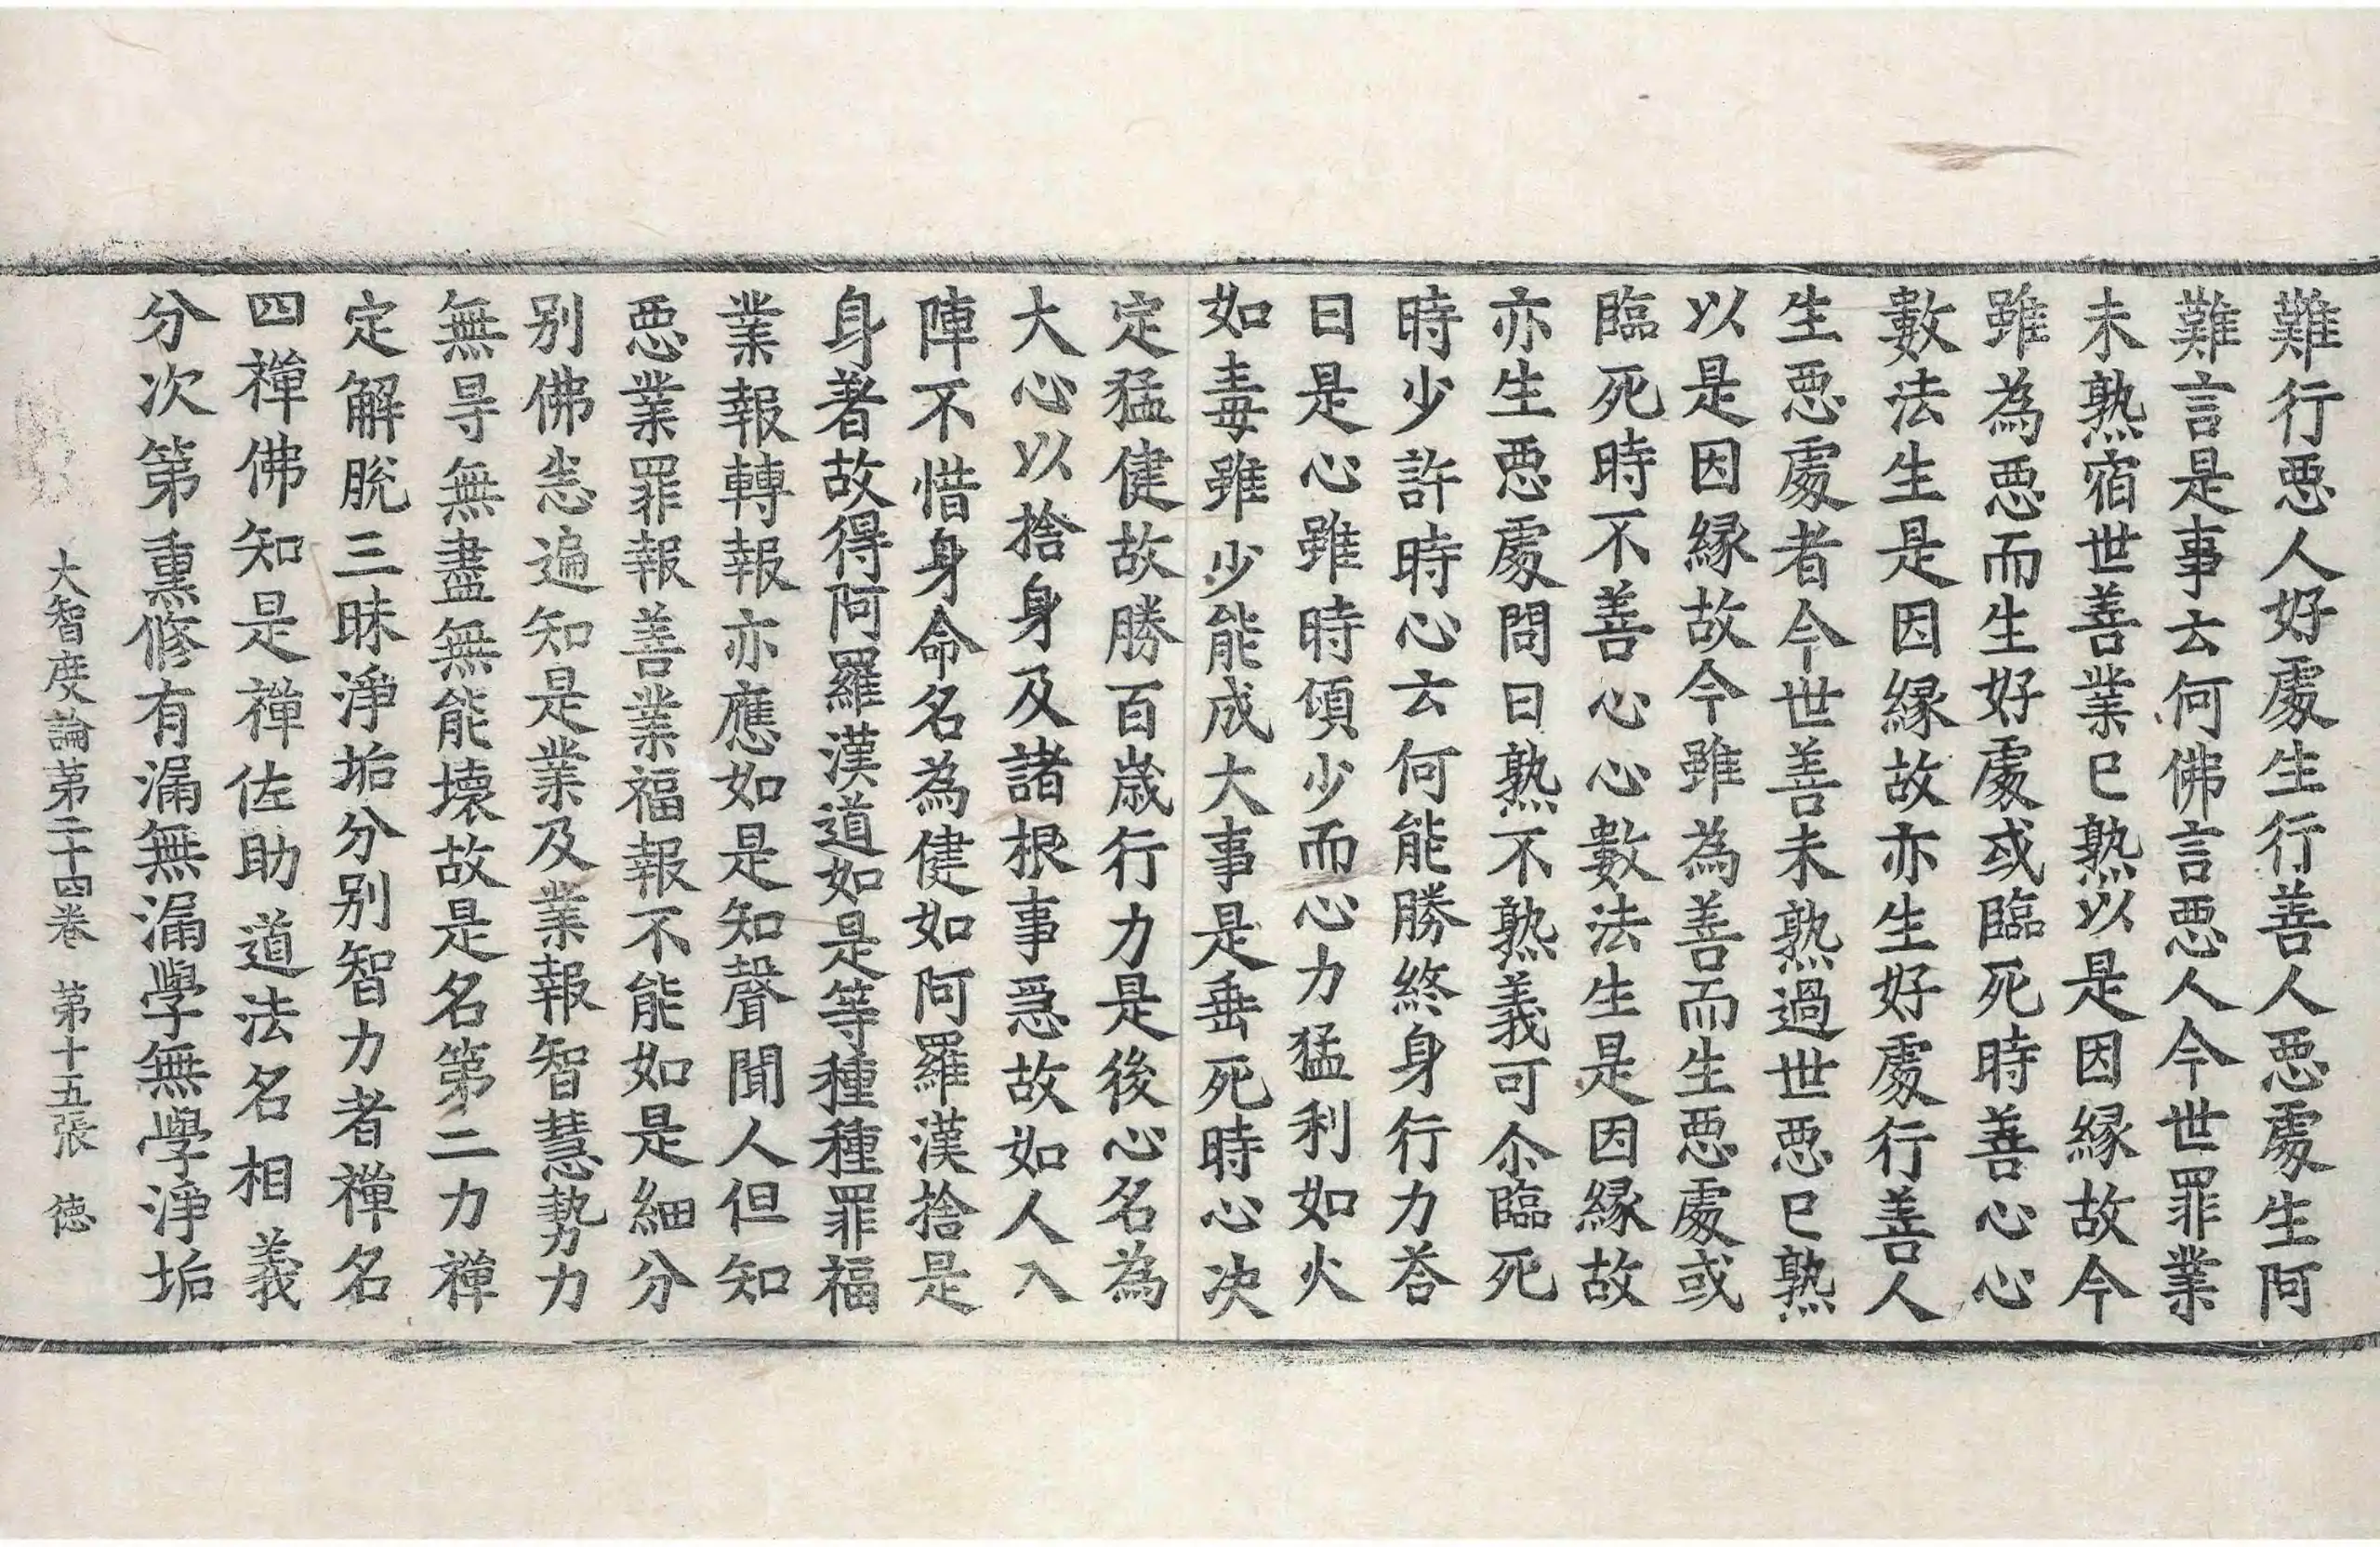 難行惡人好處生行善人惡處生阿
難言是事云何佛言惡人今世罪業
未熟宿世善業已熟以是因緣故今
雖為惡而生好處或臨死時善心心
數法生是因緣故亦生好處行善人
生惡處者今世善未熟過世惡已熟
以是因緣故今雖為善而生惡處或
臨死時不善心心數法生是因緣故
亦生惡處問曰熟不熟義可尒臨死
時少許時心云何能勝終身行力荅
曰是心雖時傾少而心力猛利如火
如毒雖少能成大事是垂死時心決
定猛健故勝百歲行力是後心名為
大心以捨身及諸根事急故如人入
陣不惜身命名為健如阿羅漢捨是
身著故得阿羅漢道如是等種種罪福
業報轉報亦應如是知聲聞人但知
惡業罪報善業福報不能如是細分
別佛悉遍知是業及業報智慧勢力
無㝵無盡無能壞故是名第二力禪
定解脫三昧淨垢分別智力者禪名
四禪佛知是禪佐助道法名相義
分次第熏修有漏無漏學無學淨垢
大智度論第二十四卷 第十五張 德